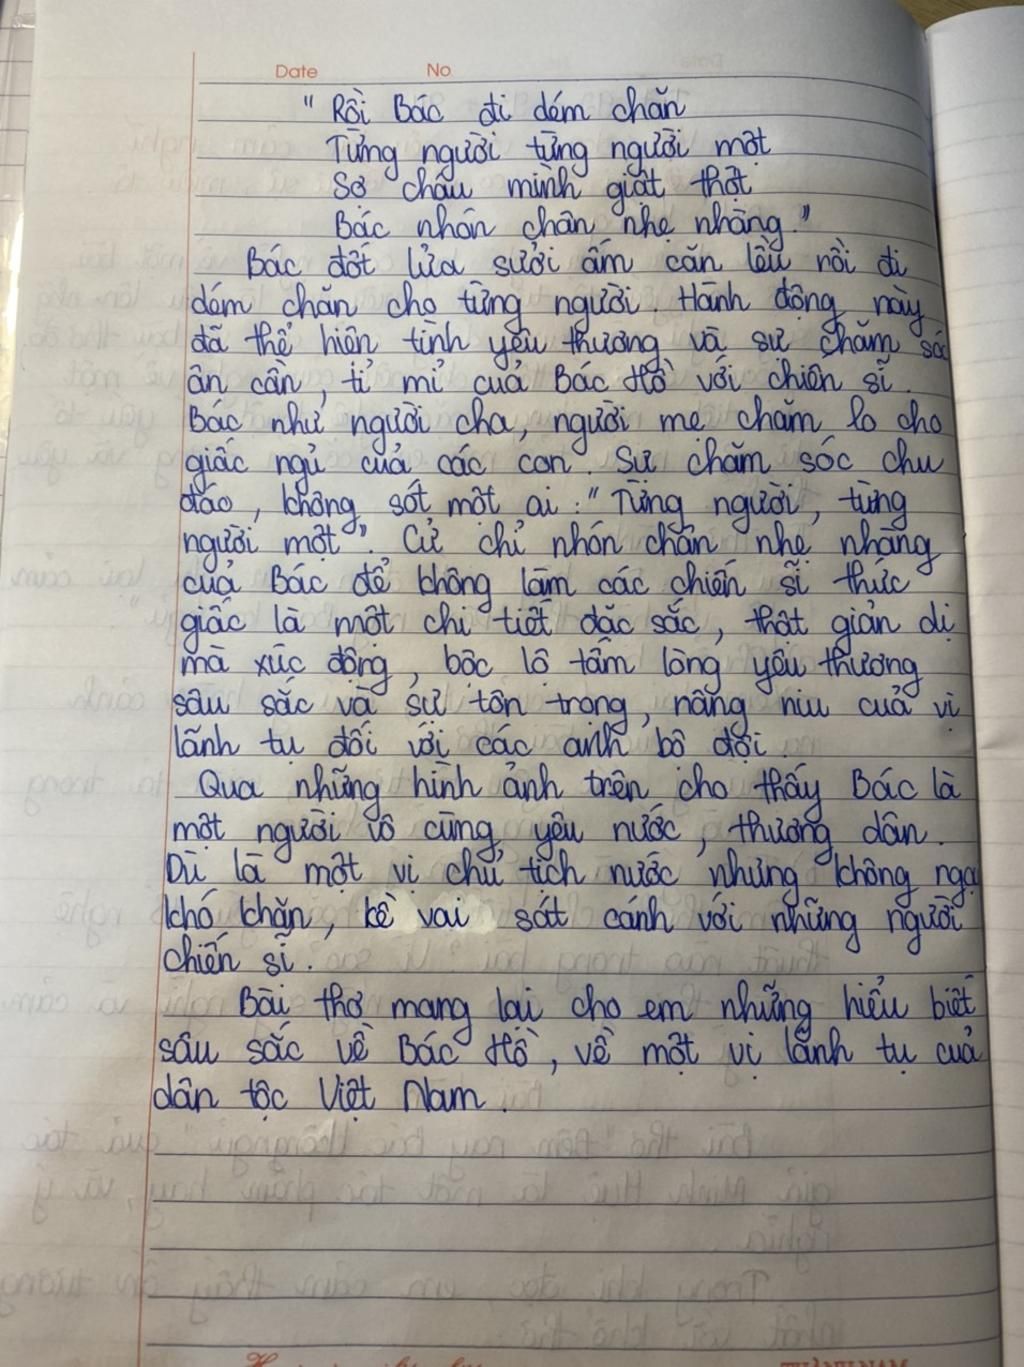 Date No
" Rồi Bác đi dém chăn
Từng người từng người một
Sợ cháu mình giật thột
Bác nhón chân nhẹ nhàng."
Bác đốt lửa sưởi ấm căn lều rồi đi
dém chăn cho từng người. Hành động này
đã thể hiện tình yêu thương và sự chăm sóc
ân cần, tỉ mỉ cuả Bác Hồ với chiến sĩ.
Bác như người cha, người mẹ chăm lo cho
giấc ngủ cuả các con. Sự chăm sóc chu
đáo, không sót một ai: " Từng người, từng
người một". Cử chỉ nhón chân nhẹ nhàng
cuả Bác để không làm các chiến sĩ thức
giấc là một chi tiết đặc sắc, thật giản dị
mà xúc động, bộc lộ tấm lòng yêu thương
sâu sắc và sự tôn trọng, nâng niu cuả vị
lãnh tụ đối với các anh bộ đội.
Qua những hình ảnh trên cho thấy Bác là
một người vô cùng yêu nước, thương dân.
Dù là một vị chủ tịch nước nhưng không ngại
khó khăn, kề vai sát cánh với những người
chiến sĩ.
Bài thơ mang lại cho em những hiểu biết
sâu sắc về Bác Hồ, về một vị lãnh tụ cuả
dân tộc Việt Nam.